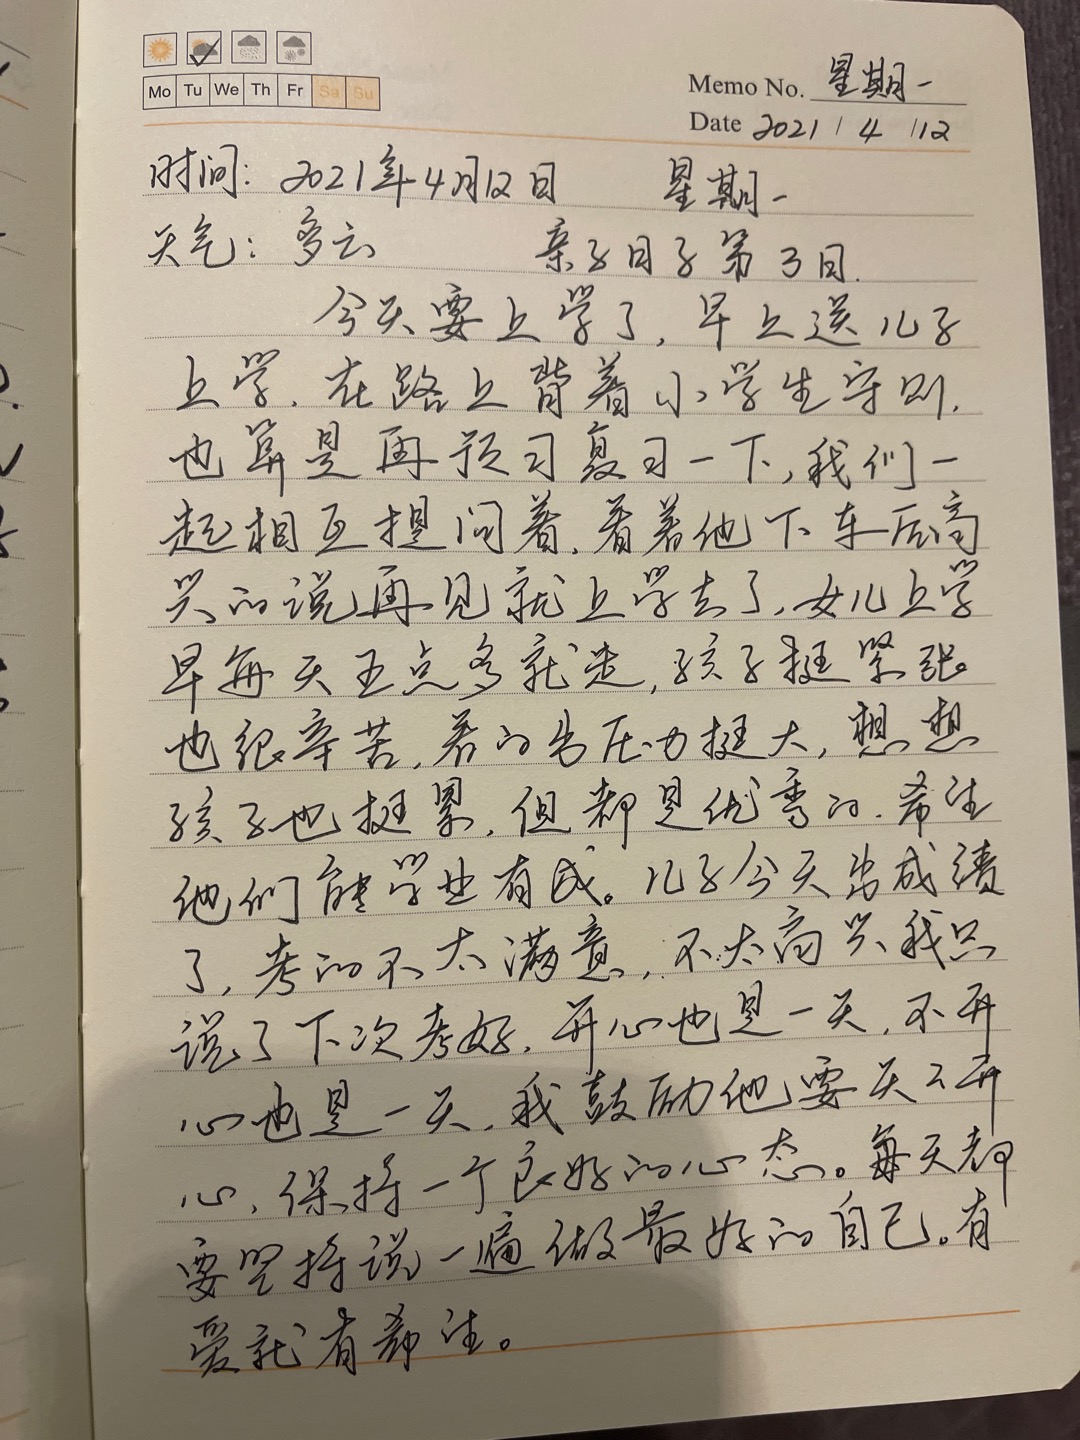 Mo Tu We Th Fr Sa Su
Memo No. 星期一
Date 2021 / 4 / 12
时间: 2021年4月12日 星期一
天气: 多云 亲子日子第3日.
今天要上学了, 早上送儿子
上学. 在路上背着小学生守则.
也算是再预习复习一下, 我们一
起相互提问着. 看着他下车后高
兴的说再见就上学去了, 女儿上学
早每天五点多就走, 孩子挺紧张
也很辛苦. 看的出压力挺大, 想想
孩子也挺累. 但都是优秀的. 希望
他们能学业有成。儿子今天出成绩
了, 考的不太满意, 不太高兴我只
说了下次考好. 开心也是一天, 不开
心也是一天, 我鼓励他要天天开
心, 保持一个良好的心态。每天都
要坚持说一遍做最好的自己。有
爱就有希望。